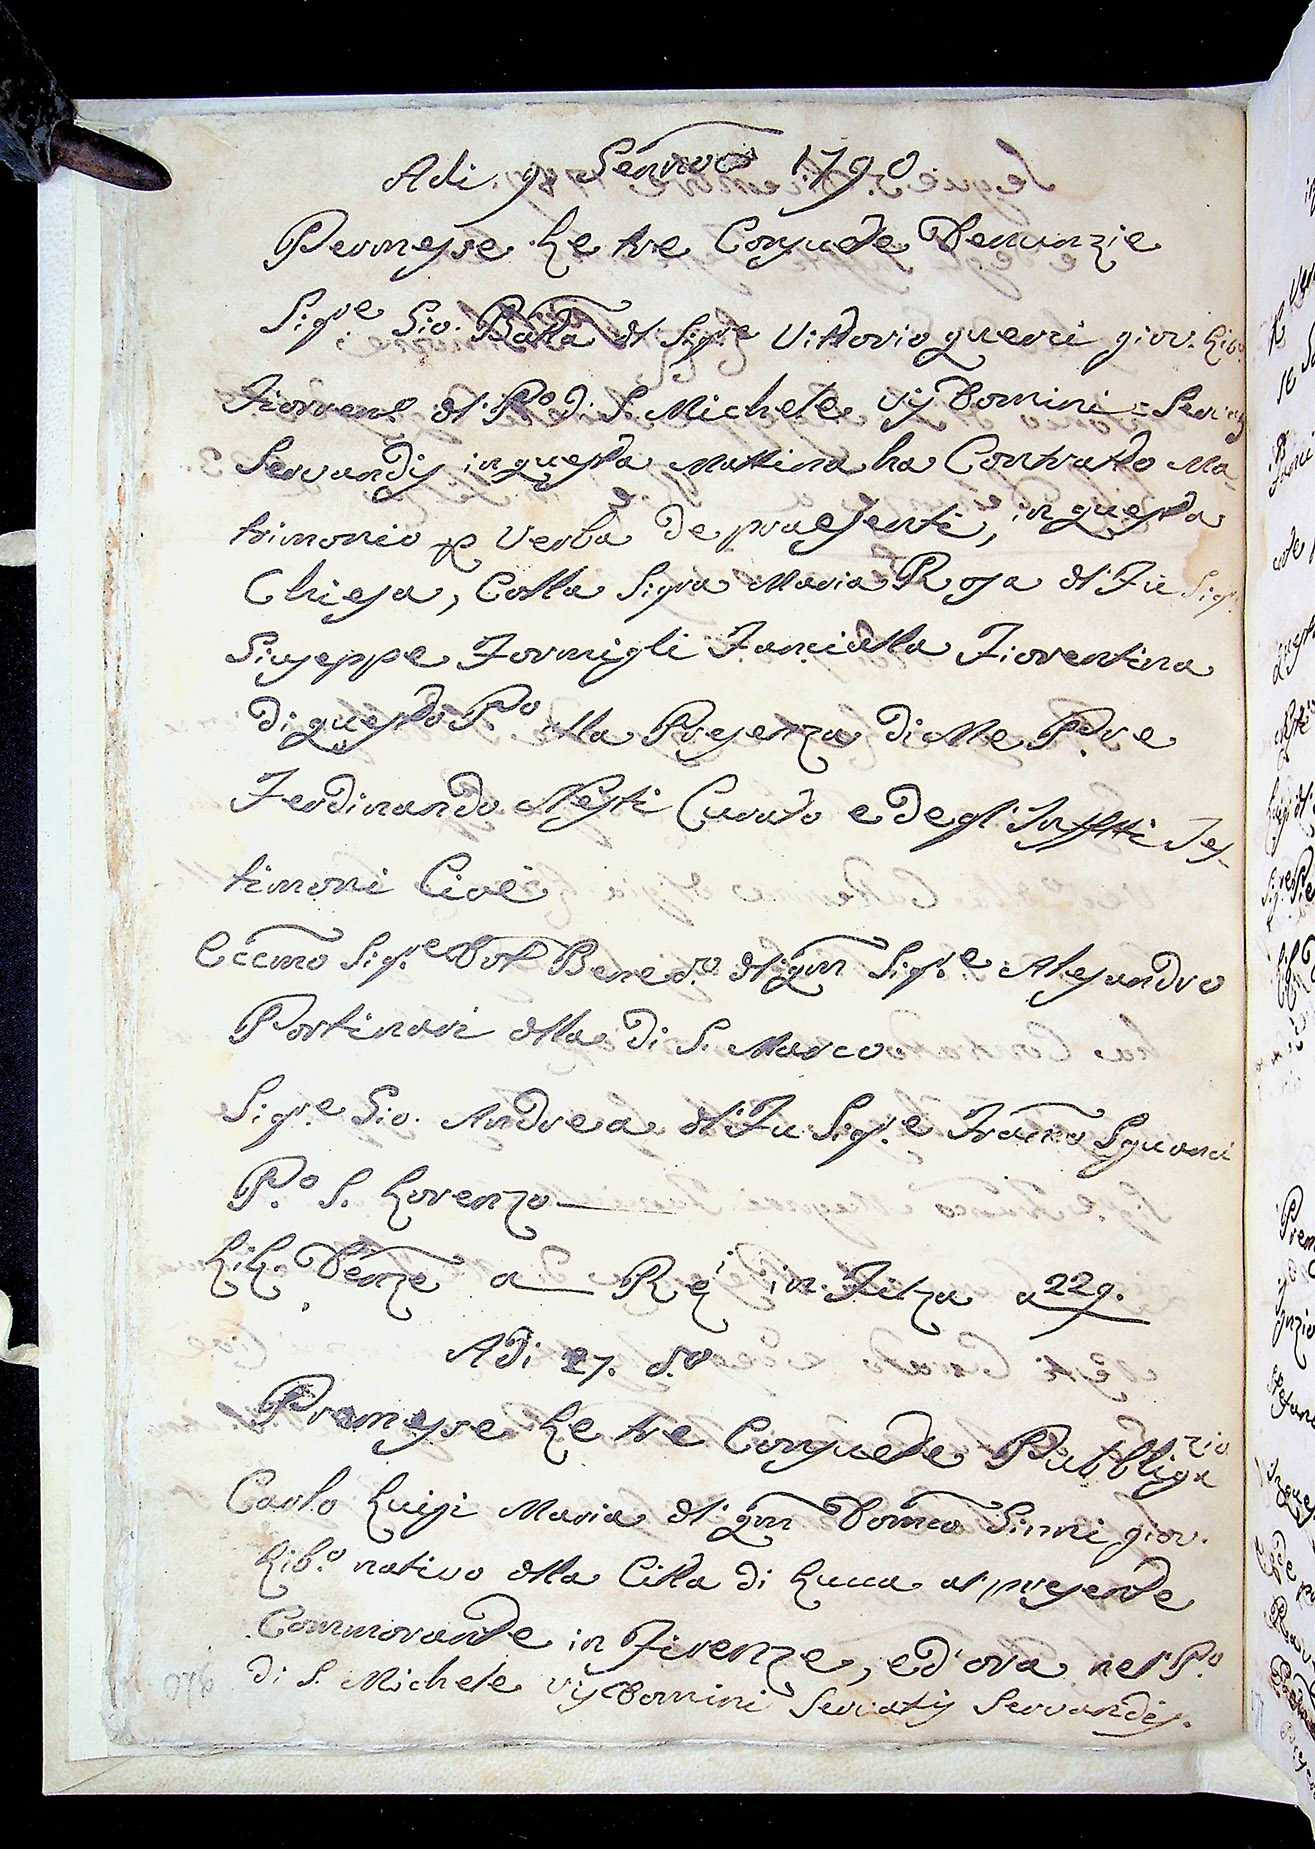 Adi 9 Genno 1790
Permesse Le tre Consuete Denunzie
Sigre Gio. Batta dl Sigre Vittorio guerri giov. Libo
Fiorent. dl Po di S. Michele Visdomini = Servatis
Servandis in questa Mattina ha Contratto Ma-
trimonio p verba de praesenti, in questa
Chiesa, Colla Sigra Maria Rosa dl Fu Sigr
Giuseppe Formigli Fanciulla Fiorentina
di questo Po alla Presenza di Me Pre
Ferdinando Nesti Curato e degl' Infftti Tes-
timoni Cioè
Eccmo Sigre Dot Benedo dl qm Sigre Alessandro
Portinari dlla di S. Marco.
Sigre Gio. Andrea dl Fu Sigre Franco Sguanci
Po S. Lorenzo
Lic. Denze a Rei in Filza a 229.
Adi 27. do
Premesse Le tre Consuete Pubbliga
zio
Carlo Luigi Maria dl qm Domco Ginni giov.
Libo nativo dlla Citta di Lucca al presente
Commorante in Firenze, ed' ora nel Po
di S. Michele Visdomini Servatis Servandis.
076